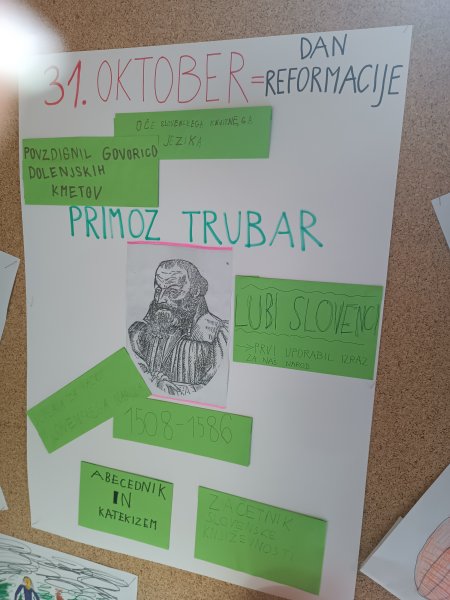 31. OKTOBER = DAN
REFORMACIJE
OČE SLOVENSKEGA KNJIŽNEGA
JEZIKA
POVZDIGNIL GOVORICO
DOLENJSKIH
KMETOV
PRIMOZ TRUBAR
LUBI SLOVENCI
PRVI UPORABIL IZRAZ
ZA NAŠ NAROD
1508-1586
ABECEDNIK
IN
KATEKIZEM
ZAČETNIK
SLOVENSKE
KNJIŽEVNOSTI